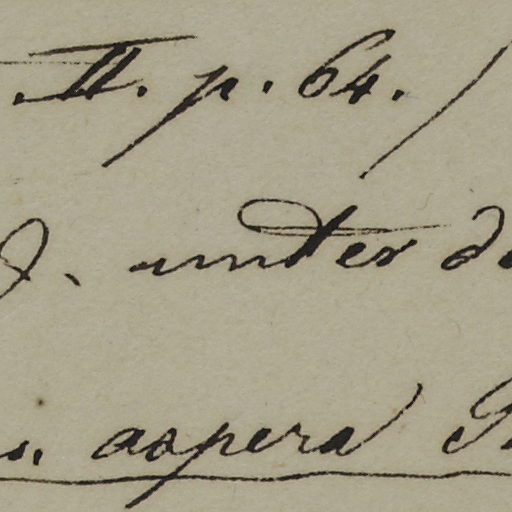 II. p. 64. /
unter
aspera